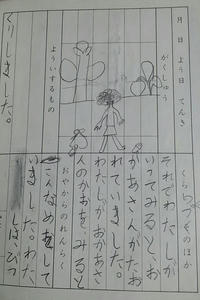 月 日 よう日 てんき
がくしゅう
よういするもの
おやからのれんらく
そのほか
それでわたしが
いってみると、お
かあさんがたお
れていました。
わたしがおかあさ
んのかおを、みる
こんなめをして
いました。わた
しは、びっ
くりしました。